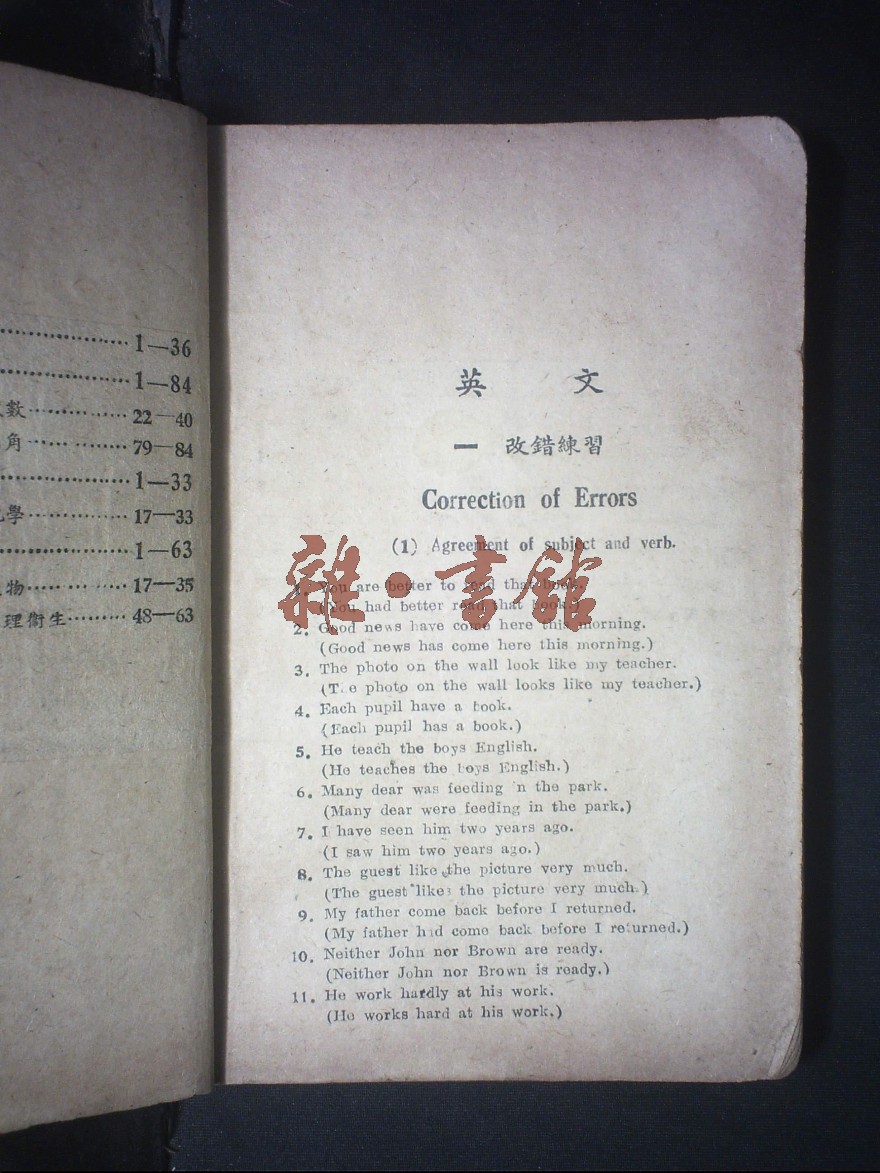 1—36
1—84
數 22—40
角 79—84
1—33
學 17—33
1—63
物 17—35
理衞生 48—63
英 文
一 改錯練習
Correction of Errors
(1) Agreement of subject and verb.
雜·書館
1. You are better to read that book.
(You had better read that book.)
2. Good news have come here this morning.
(Good news has come here this morning.)
3. The photo on the wall look like my teacher.
(T e photo on the wall looks like my teacher.)
4. Each pupil have a book.
(Each pupil has a book.)
5. He teach the boys English.
(He teaches the boys English.)
6. Many dear was feeding n the park.
(Many dear were feeding in the park.)
7. I have seen him two years ago.
(I saw him two years ago.)
8. The guest like the picture very much.
(The guest likes the picture very much.)
9. My father come back before I returned.
(My father had come back before I returned.)
10. Neither John nor Brown are ready.
(Neither John nor Brown is ready.)
11. He work hardly at his work.
(He works hard at his work.)